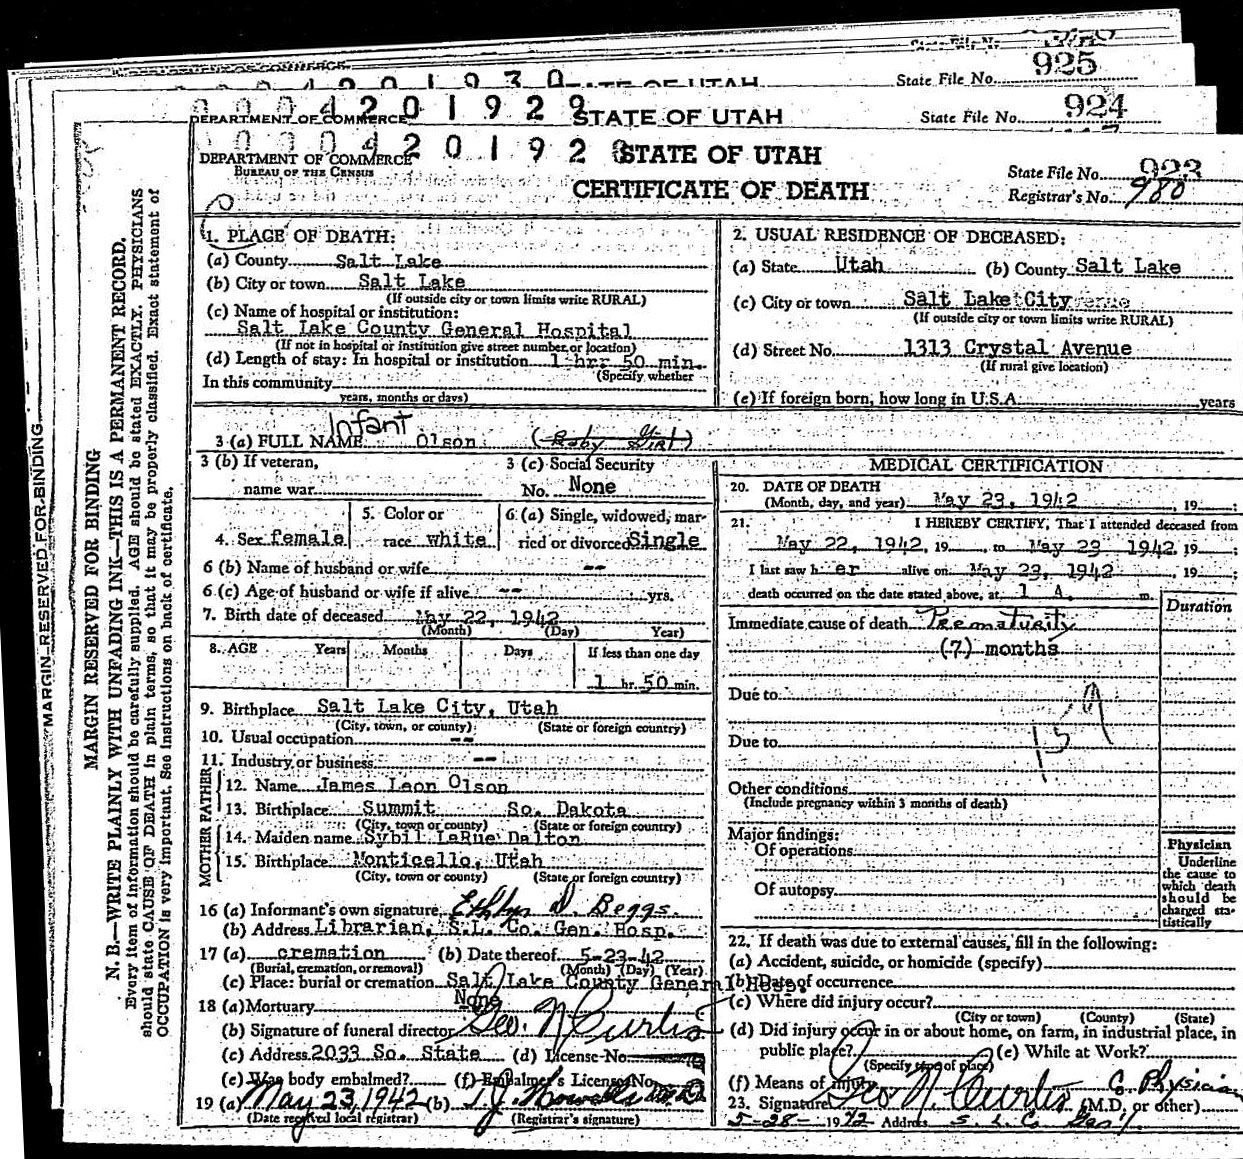 925
State File No.
STATE OF UTAH
924
0004201929
DEPARTMENT OF COMMERCE
STATE OF UTAH
State File No.
000420192
DEPARTMENT OF COMMERCE
BUREAU OF THE CENSUS
STATE OF UTAH
CERTIFICATE OF DEATH
State File No. 923
Registrar's No. 980
MARGIN RESERVED FOR BINDING
MARGIN RESERVED FOR BINDING
N. B.—WRITE PLAINLY WITH UNFADING INK—THIS IS A PERMANENT RECORD.
Every item of information should be carefully supplied. AGE should be stated EXACTLY. PHYSICIANS
should state CAUSE OF DEATH in plain terms, so that it may be properly classified. Exact statement of
OCCUPATION is very important. See instructions on back of certificate.
1. PLACE OF DEATH:
(a) County Salt Lake
(b) City or town Salt Lake
(If outside city or town limits write RURAL)
(c) Name of hospital or institution:
Salt Lake County General Hospital
(If not in hospital or institution give street number or location)
(d) Length of stay: In hospital or institution 1 hr. 50 min.
(Specify whether
In this community
years, months or days)
2. USUAL RESIDENCE OF DECEASED:
(a) State Utah (b) County Salt Lake
(c) City or town Salt Lake City
(If outside city or town limits write RURAL)
(d) Street No. 1313 Crystal Avenue
(If rural give location)
(e) If foreign born, how long in U.S.A. years
3 (a) FULL NAME Infant Olson (Baby Girl)
3 (b) If veteran,
name war
3 (c) Social Security
No. None
4. Sex female
5. Color or
race white
6 (a) Single, widowed, mar-
ried or divorced Single
6 (b) Name of husband or wife --
6 (c) Age of husband or wife if alive -- yrs.
7. Birth date of deceased May 22, 1942
(Month) (Day) Year)
8. AGE Years Months Days If less than one day
1 hr. 50 min.
9. Birthplace Salt Lake City, Utah
(City, town, or county) (State or foreign country)
10. Usual occupation --
11. Industry or business --
FATHER
12. Name James Leon Olson
13. Birthplace Summit So. Dakota
(City, town or county) (State or foreign country)
MOTHER
14. Maiden name Sybil LaRue Dalton
15. Birthplace Monticello, Utah
(City, town or county) (State or foreign country)
16 (a) Informant's own signature D. Beggs.
(b) Address Librarian, S.L. Co. Gen. Hosp.
17 (a) cremation (b) Date thereof 5-23-42
(Burial, cremation, or removal) (Month) (Day) (Year)
(c) Place: burial or cremation Salt Lake County General Hosp.
18 (a) Mortuary None
(b) Signature of funeral director Geo. N Curtis
(c) Address 2033 So. State (d) License No.
(e) Was body embalmed? (f) Embalmer's License No.
19 (a) May 23, 1942 (b) T.J. Howells M.D.
(Date received local registrar) (Registrar's signature)
MEDICAL CERTIFICATION
20. DATE OF DEATH
(Month, day, and year) May 23, 1942, 19 ;
21. I HEREBY CERTIFY, That I attended deceased from
May 22, 1942, 19 , to May 23 1942, 19 ;
I last saw h er alive on May 23, 1942, 19 ;
death occurred on the date stated above, at 1 A. m.
Duration
Immediate cause of death Prematurity
(7) months
Due to
159
Due to
Other conditions
(Include pregnancy within 3 months of death)
Major findings:
Of operations
Of autopsy
Physician
Underline
the cause to
which death
should be
charged sta-
tistically
22. If death was due to external causes, fill in the following:
(a) Accident, suicide, or homicide (specify)
(b) Date of occurrence
(c) Where did injury occur?
(City or town) (County) (State)
(d) Did injury occur in or about home, on farm, in industrial place, in
public place? (e) While at Work?
(Specify type of place)
(f) Means of injury
23. Signature Geo N. Curtis C. Physician (M.D. or other)
5-28-1942 Address S. L. C. Gen'l